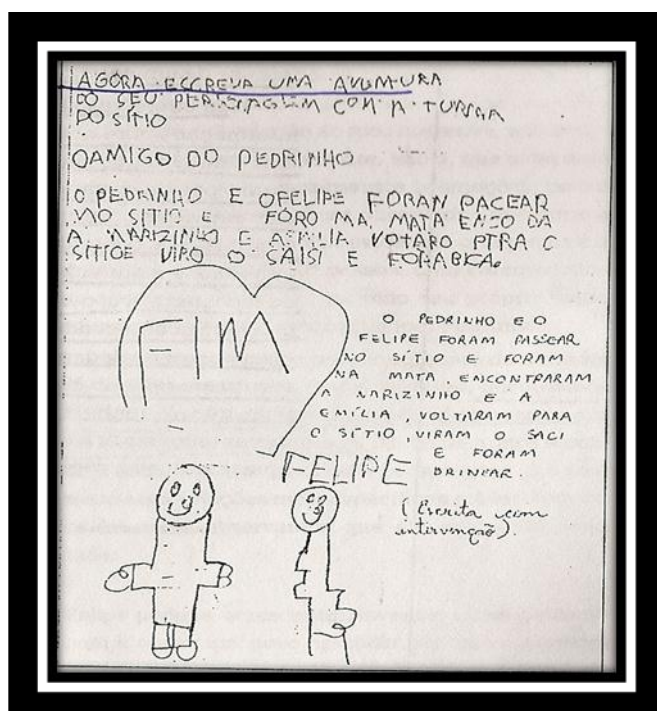 AGORA ESCREVA UMA AVUMTURA
DO SEU PERSSAGEM COM A TURMA
DO SÍTIO
OAMIGO DO PEDRINHO
O PEDRINHO E OFELIPE FORAN PACEAR
NO SITIO E FORO MA MATA ENCO DA
A NARIZINHO E AEMILIA VOTARO PTRA O
SITIOE VIRO O SAISI E FORABICA.
FIM
O PEDRINHO E O
FELIPE FORAM PASSEAR
NO SÍTIO E FORAM
NA MATA, ENCONTRARAM
A NARIZINHO E A
EMÍLIA, VOLTARAM PARA
O SÍTIO, VIRAM O SACI
E FORAM
BRINCAR.
FELIPE
(Escrita com
intervenção).